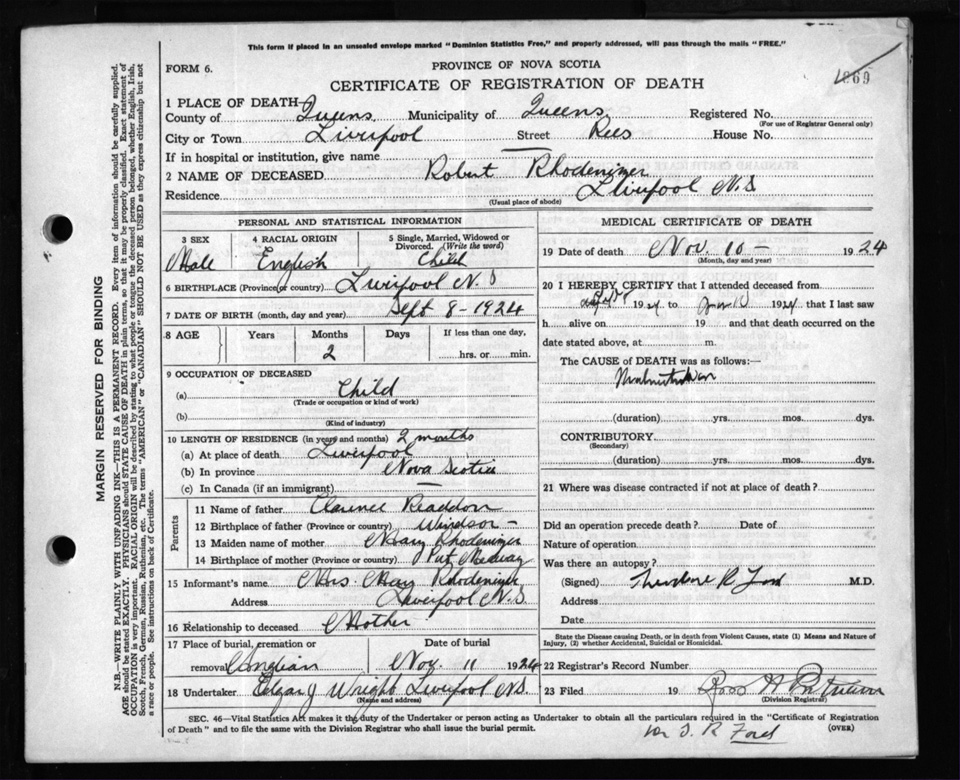 This form if placed in an unsealed envelope marked "Dominion Statistics Free," and properly addressed, will pass through the mails "FREE."
FORM 6.
PROVINCE OF NOVA SCOTIA
CERTIFICATE OF REGISTRATION OF DEATH
869
1 PLACE OF DEATH—
County of Queens Municipality of Queens Registered No.
(For use of Registrar General only)
City or Town Liverpool Street Rees House No.
If in hospital or institution, give name —
2 NAME OF DECEASED Robert Rhodenizer
Residence Liverpool N.S
(Usual place of abode)
PERSONAL AND STATISTICAL INFORMATION
3 SEX 4 RACIAL ORIGIN 5 Single, Married, Widowed or Divorced. (Write the word)
Male English Child
6 BIRTHPLACE (Province or country) Liverpool N.S
7 DATE OF BIRTH (month, day and year) Sept 8-1924
8 AGE Years Months Days If less than one day,
2 hrs. or min.
9 OCCUPATION OF DECEASED
(a) Child
(Trade or occupation or kind of work)
(b)
(Kind of industry)
10 LENGTH OF RESIDENCE (in years and months) 2 months
(a) At place of death Liverpool
(b) In province Nova Scotia
(c) In Canada (if an immigrant) —
Parents
11 Name of father Clarence Readdon
12 Birthplace of father (Province or country) Windsor —
13 Maiden name of mother Mary Rhodenizer
14 Birthplace of mother (Province or country) Port Medway
15 Informant's name Mrs. May Rhodenizer
Address Liverpool N.S.
16 Relationship to deceased Mother
17 Place of burial, cremation or removal Date of burial
Nov. 11 1924
18 Undertaker Edgar J Wright Liverpool N.S.
(Name and address)
MEDICAL CERTIFICATE OF DEATH
19 Date of death Nov. 10 - 1924
(Month, day and year)
20 I HEREBY CERTIFY that I attended deceased from
1924 to 1924 that I last saw
h alive on 19 and that death occurred on the
date stated above, at m.
The CAUSE of DEATH was as follows:—
Malnutrition
(duration) yrs. mos. dys.
CONTRIBUTORY
(Secondary)
(duration) yrs. mos. dys.
21 Where was disease contracted if not at place of death?
Did an operation precede death? Date of
Nature of operation
Was there an autopsy?
(Signed) Theodore R Ford M.D.
Address
Date
State the Disease causing Death, or in death from Violent Causes, state (1) Means and Nature of Injury, (2) whether Accidental, Suicidal or Homicidal.
22 Registrar's Record Number
23 Filed 19
(Division Registrar)
SEC. 46—Vital Statistics Act makes it the duty of the Undertaker or person acting as Undertaker to obtain all the particulars required in the "Certificate of Registration
of Death" and to file the same with the Division Registrar who shall issue the burial permit. (OVER)
Dr T. R Ford
MARGIN RESERVED FOR BINDING
N.B.—WRITE PLAINLY WITH UNFADING INK—THIS IS A PERMANENT RECORD. Every item of information should be carefully supplied.
AGE should be stated EXACTLY. PHYSICIANS should STATE CAUSE OF DEATH in plain terms, so that it may be properly classified. Exact statement of
OCCUPATION is very important. RACIAL ORIGIN will be described by stating to what people or tongue the deceased person belonged, whether English, Irish,
Scotch, French, German, Russian, Ruthenian, etc. The terms "AMERICAN" or "CANADIAN" SHOULD NOT BE USED as they express citizenship but not
a race or people. See instructions on back of Certificate.